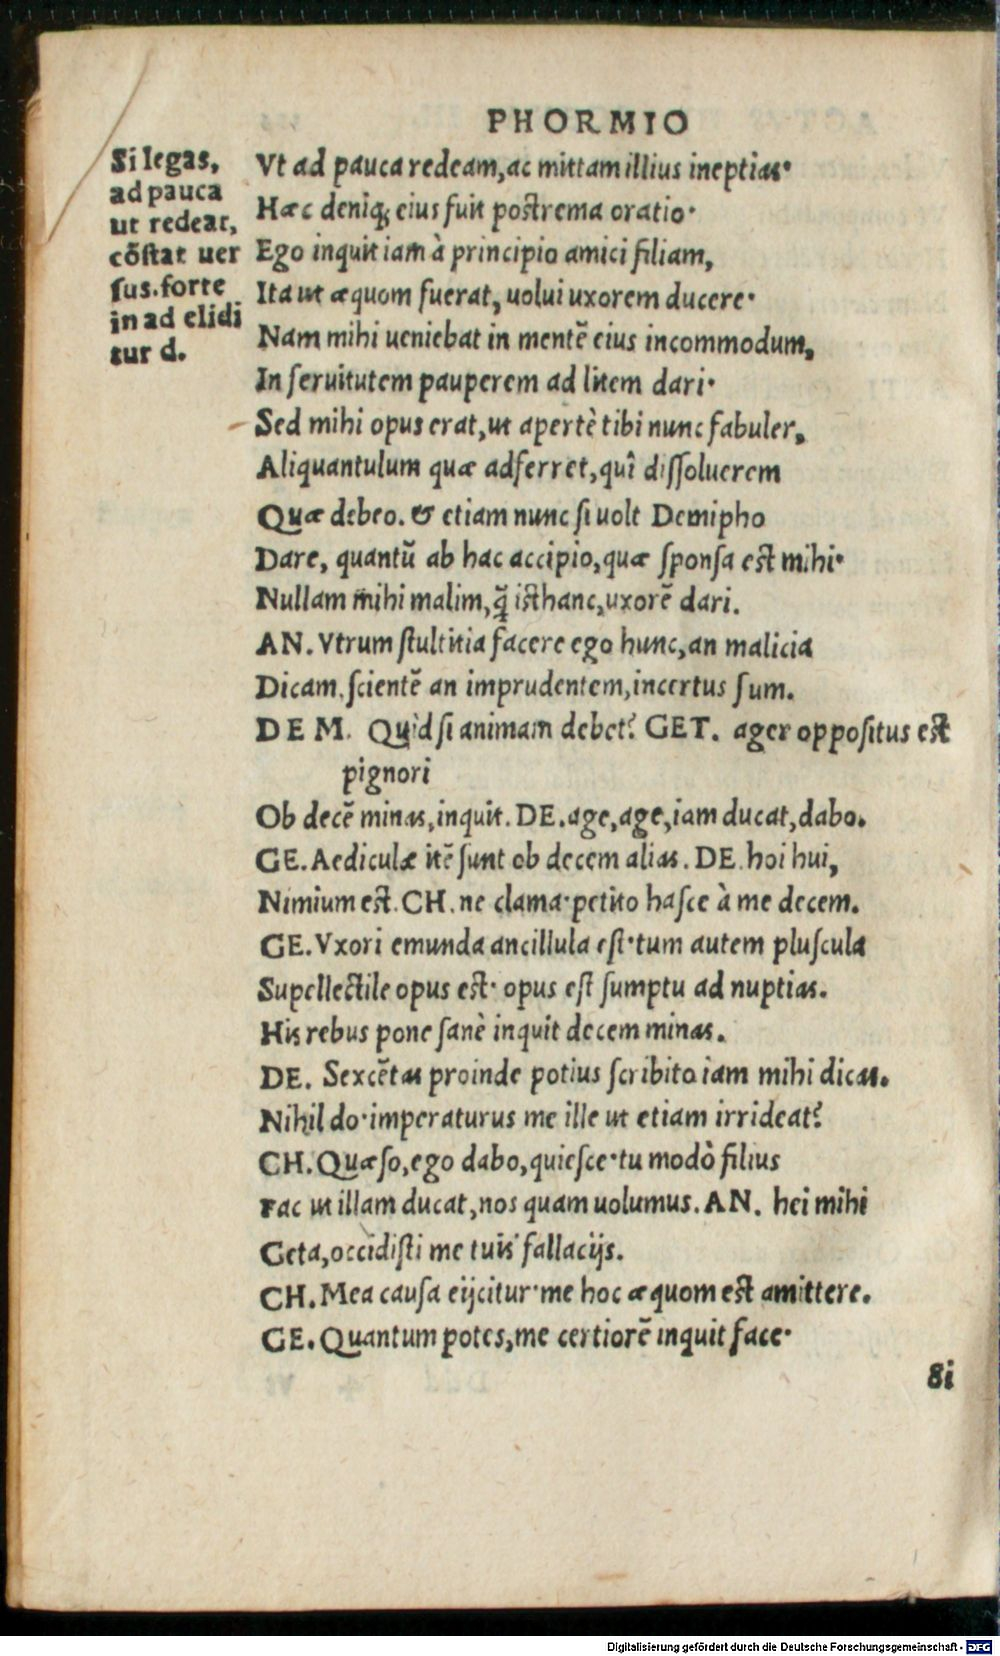 PHORMIO
Si legas,
ad pauca
ut redeat,
cõstat uer
sus. forte
in ad elidi
tur d.
Vt ad pauca redeam, ac mittam illius ineptias·
Hæc deniq; eius fuit postrema oratio·
Ego inquit iam à principio amici filiam,
Ita ut æquom fuerat, uolui uxorem ducere·
Nam mihi ueniebat in mentẽ eius incommodum,
In seruitutem pauperem ad litem dari·
Sed mihi opus erat, ut apertè tibi nunc fabuler,
Aliquantulum quæ adferret, quî dissoluerem
Quæ debeo. & etiam nunc si uolt Demipho
Dare, quantũ ab hac accipio, quæ sponsa est mihi·
Nullam mihi malim, q̃ isthanc, uxorẽ dari.
AN. Vtrum stultitia facere ego hunc, an malicia
Dicam. scientẽ an imprudentem, incertus sum.
DEM. Quid si animam debet? GET. ager oppositus est
pignori
Ob decẽ minas, inquit. DE. age, age, iam ducat, dabo.
GE. Aediculæ itẽ sunt ob decem alias. DE. hoi hui,
Nimium est. CH. ne clama· petito hasce à me decem.
GE. Vxori emunda ancillula est· tum autem pluscula
Supellectile opus est· opus est sumptu ad nuptias.
His rebus pone sanè inquit decem minas.
DE. Sexcẽtas proinde potius scribito iam mihi dicas.
Nihil do· imperaturus me ille ut etiam irrideat?
CH. Quæso, ego dabo, quiesce· tu modò filius
Fac ut illam ducat, nos quam uolumus. AN. hei mihi
Geta, occidisti me tuis fallacijs.
CH. Mea causa eijcitur· me hoc æquom est amittere.
GE. Quantum potes, me certiorẽ inquit face·
Si
Digitalisierung gefördert durch die Deutsche Forschungsgemeinschaft - DFG